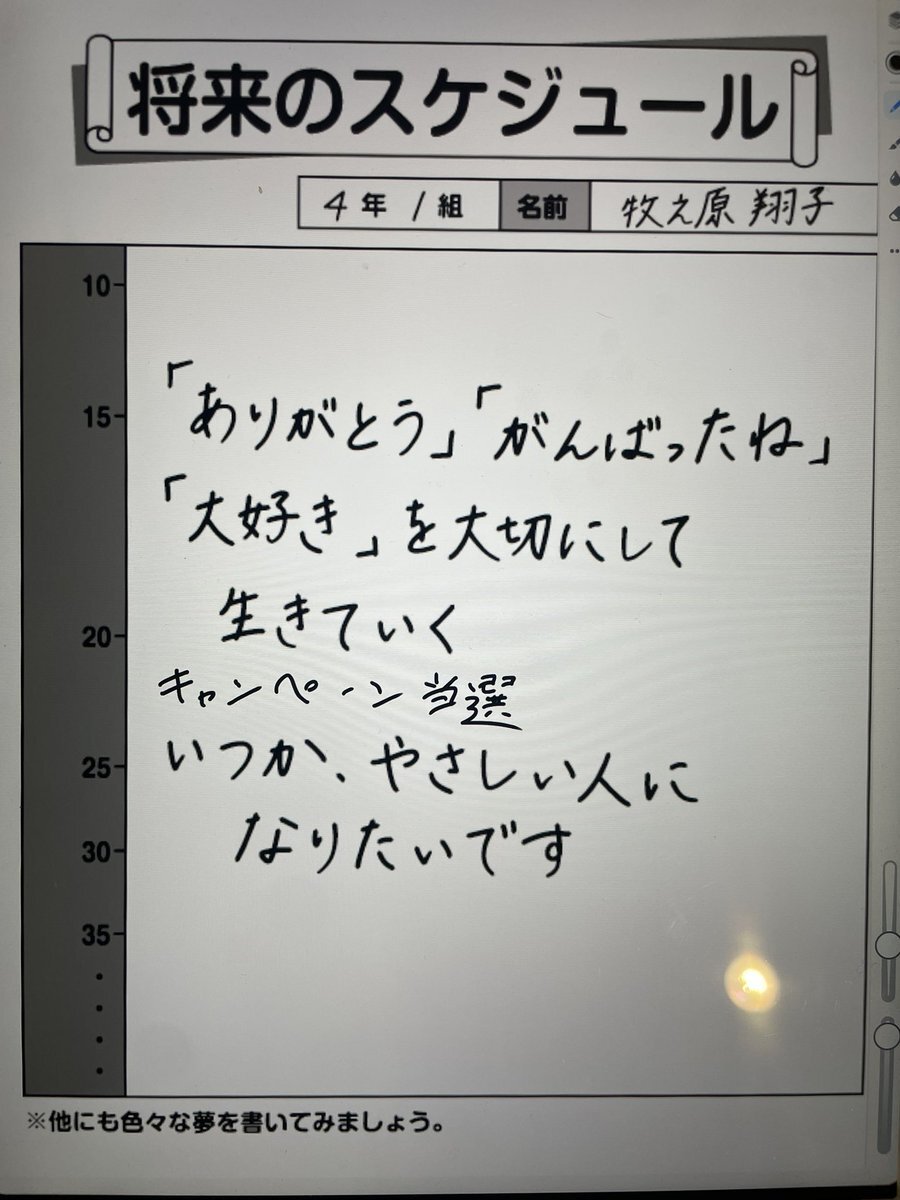 将来のスケジュール
4年 1組 名前 牧之原 翔子
10
「ありがとう」「がんばったね」
15
「大好き」を大切にして
生きていく
20
キャンペーン 当選
いつか、やさしい人に
25
なりたいです
30
35
※他にも色々な夢を書いてみましょう。